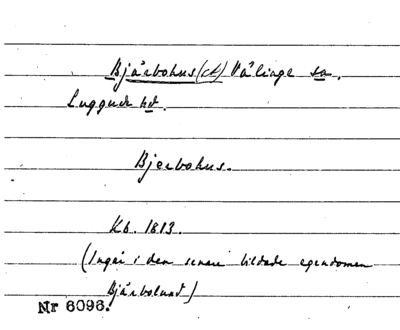 Bjärbohus (ch) Välinge sn.
Luggude hd.
Bjerbohus.
Kb. 1813.
(Ingår i den senare bildade egendomen
Bjärbolund)
Nr 6096.